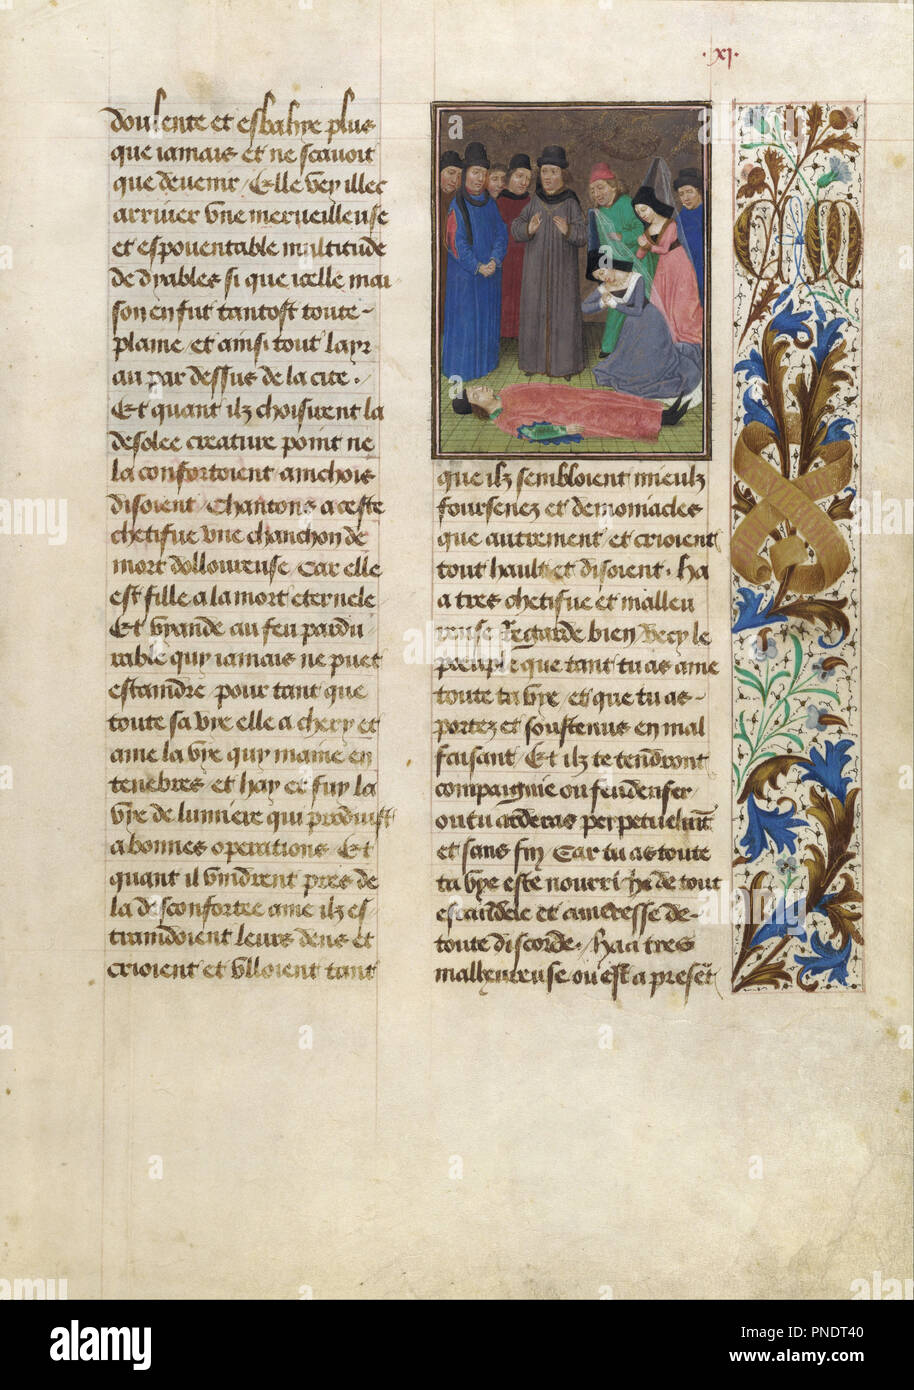 ·xj·
doulente et esbahye plus
que iamais et ne scauoit
que deuenir / Elle vey illec
arriuer vne merueilleuse
et espouentable multitude
de dyables si que icelle mai
son en fut tantost toute
plaine / et ainsi tout layr
au par dessus de la cite .
Et quant ilz choisirent la
desolee creature point ne
la confortoient ainchois
disoient / Chantons a ceste
chetifue vne chanchon de
mort dolloureuse / Car elle
est fille a la mort eternele
Et vyande au feu pardu
rable quy iamais ne puet
estaindre pour tant que
toute sa vye elle a chery et
ame la vye quy maine en
tenebres et hay et fuy la
vye de lumiere qui produist
a bonnes operations / Et
quant il vindrent pres de
la desconfortee ame ilz es
traindoient leurs dens et
crioient et vlloient tant
que ilz sembloient mieulz
foursenez et demoniacles
que autrement et crioient
tout hault et disoient . Ha
a tres chetifue et malleu
reuse Regarde bien Vecy le
poeuple que tant tu as ame
toute ta vye et que tu as
portez et soustenus en mal
faisant / Et ilz te tendront
compaignie ou feu denfer
ou tu arderas perpetuelmt
et sans fin Car tu as toute
ta vye este nourri Ha de tout
escandele et ameresse de
toute discorde / ha a tres
malheureuse ou est a preset
alamy
Image ID: PNDT40
www.alamy.com